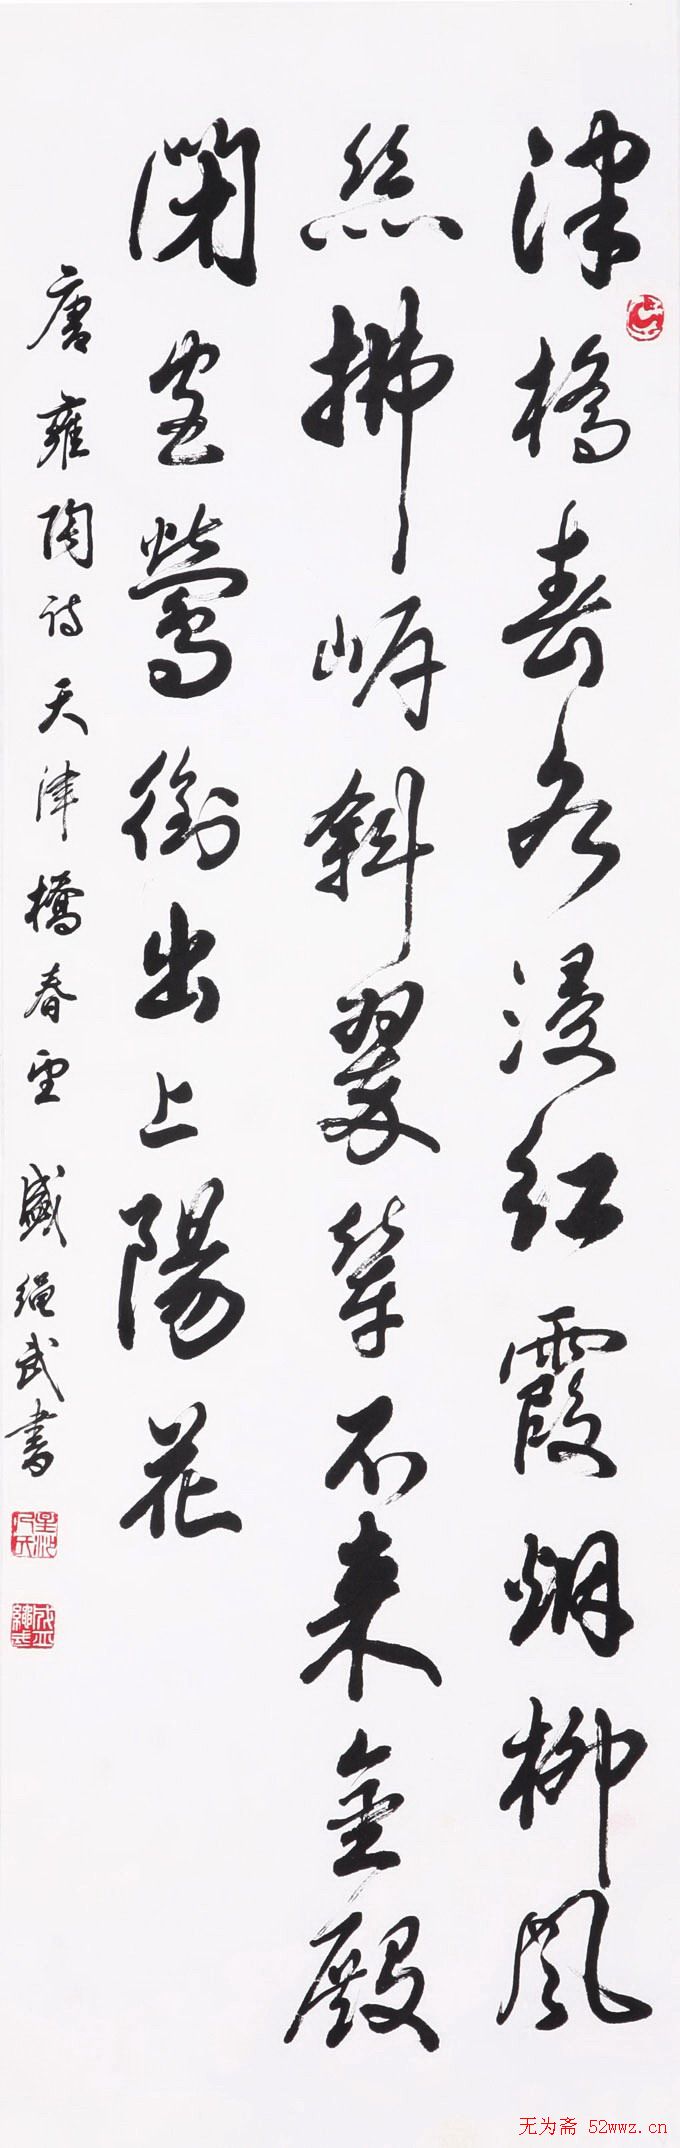 津橋春水浸红霞烟柳風
絲拂岸斜翠辇不来金殿
閉宫鶯銜出上陽花
唐雍陶诗天津橋春望 盛绳武書
无为斋 52wwz.cn